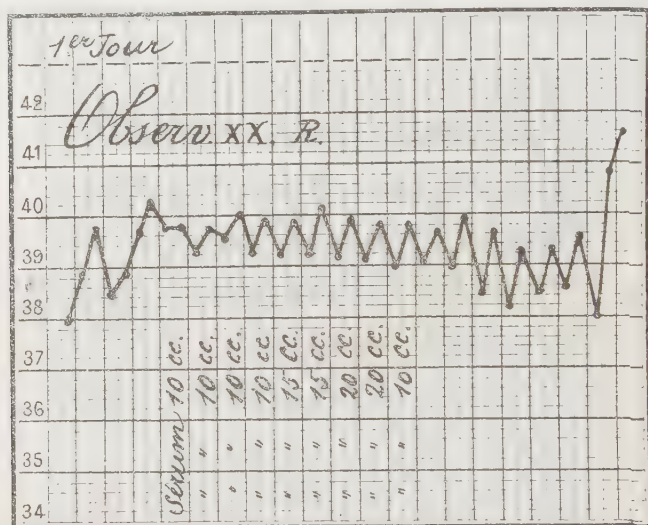 1er Jour
42
Observ. XX. R.
41
40
39
38
37
36
35
34
Sérum 10 cc.
" " 10 cc.
" " 10 cc.
" " 10 cc
" " 15 cc.
" " 15 cc.
" " 20 cc
" " 20 cc.
" " 10 cc.